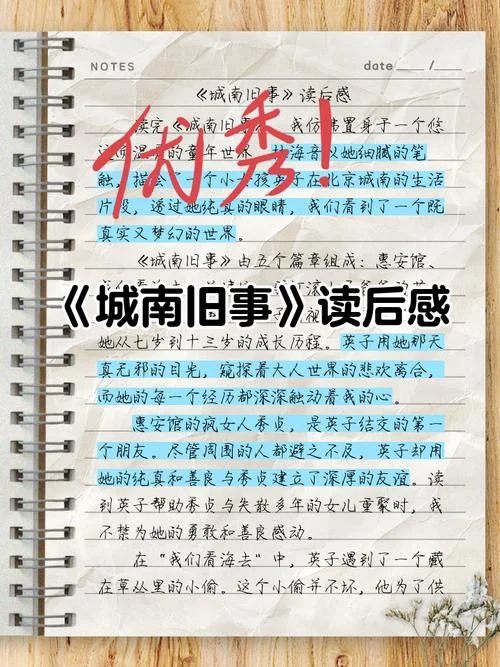 NOTES
date ___ / ___
《城南旧事》读后感
优秀!
读完《城南旧事》,我仿佛置身于一个悠
温 的童年世界。林海音以她细腻的笔
触,描绘了一个小女孩英子在北京城南的生活
片段,透过她纯真的眼睛,我们看到了一个既
真实又梦幻的世界。
《城南旧事》由五个篇章组成:惠安馆、
《城南旧事》读后感
她从七岁到十三岁的成长历程。英子用她那天
真无邪的目光,窥探着大人世界的悲欢离合,
而她的每一个经历都深深触动着我的心。
惠安馆的疯女人秀贞,是英子结交的第一
个朋友。尽管周围的人都避之不及,英子却用
她的纯真和善良与秀贞建立了深厚的友谊。读
到英子帮助秀贞与失散多年的女儿重聚时,我
不禁为她的勇敢和善良感动。
在“我们看海去”中,英子遇到了一个藏
在草丛里的小偷。这个小偷并不坏,他为了供